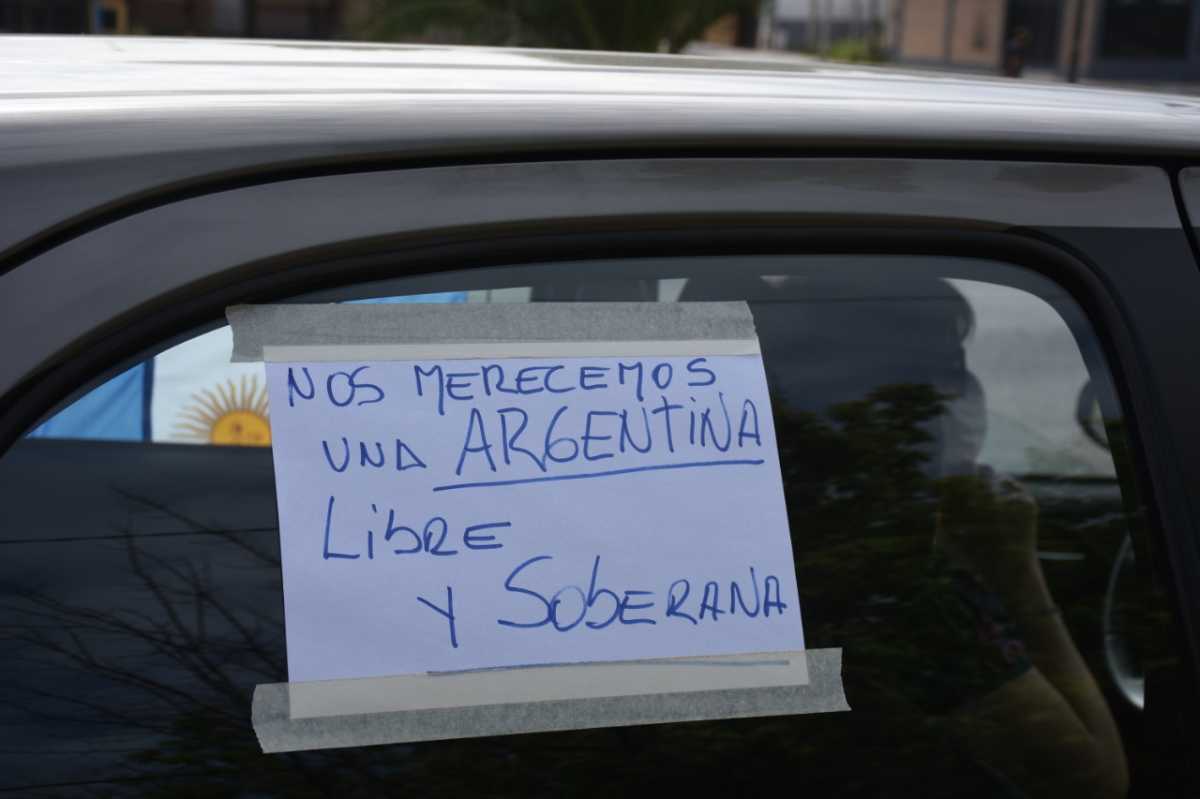 NOS MERECEMOS
UNA ARGENTINA
LibRE
Y SobERANA